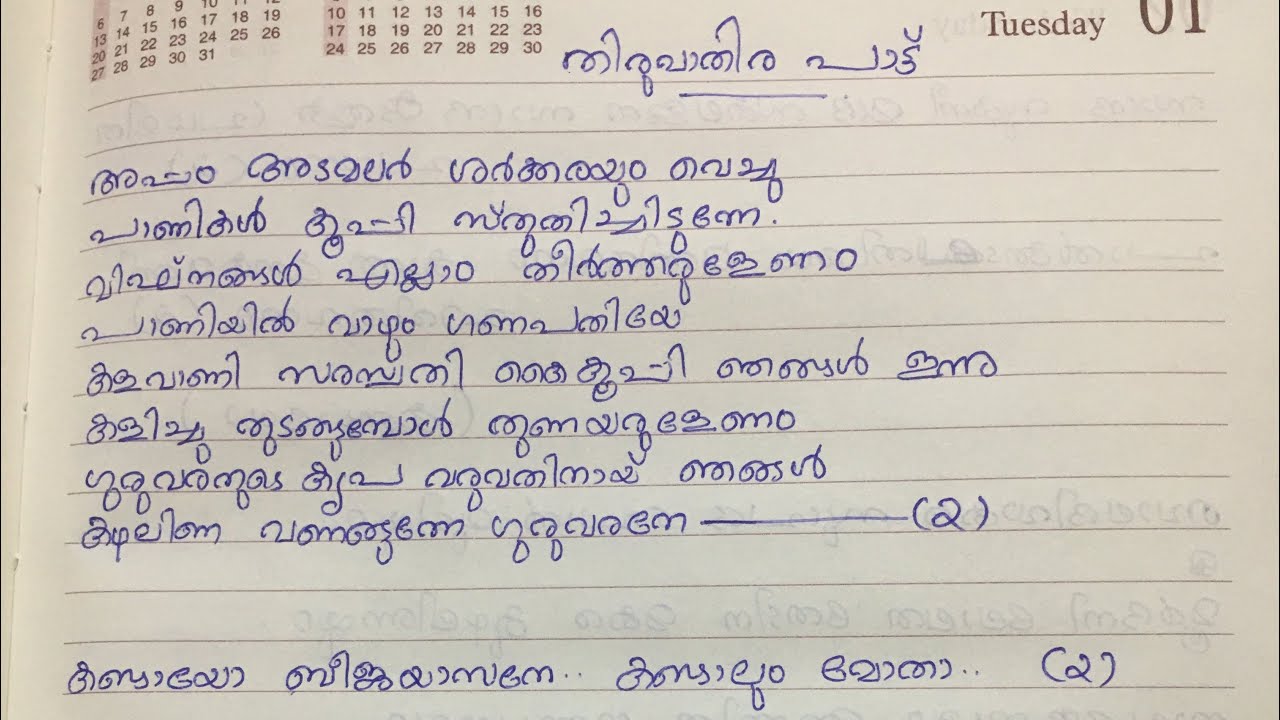 6 7 8 9 10 11 12
13 14 15 16 17 18 19
20 21 22 23 24 25 26
27 28 29 30 31
10 11 12 13 14 15 16
17 18 19 20 21 22 23
24 25 26 27 28 29 30
Tuesday 01
തിരുവാതിര പാട്ട്
അപ്പം അടമലർ ശർക്കരയും വെച്ചു
പാണികൾ കൂപ്പി സ്തുതിച്ചിടുന്നേ.
വിഘ്നങ്ങൾ എല്ലാം തീർത്തരുളേണം
പാണിയിൽ വാഴും ഗണപതിയേ
കളവാണി സരസ്വതി കൈകൂപ്പി ഞങ്ങൾ ഇന്നു
കളിച്ചു തുടങ്ങുമ്പോൾ തുണയരുളേണം
ഗുരുവരനുടെ കൃപ വരുവതിനായ് ഞങ്ങൾ
കഴലിണ വണങ്ങുന്നേ ഗുരുവരനേ (൨)
കണ്ടായോ ബീജയാസനേ.. കണ്ടാലും മോതാ.. (൨)